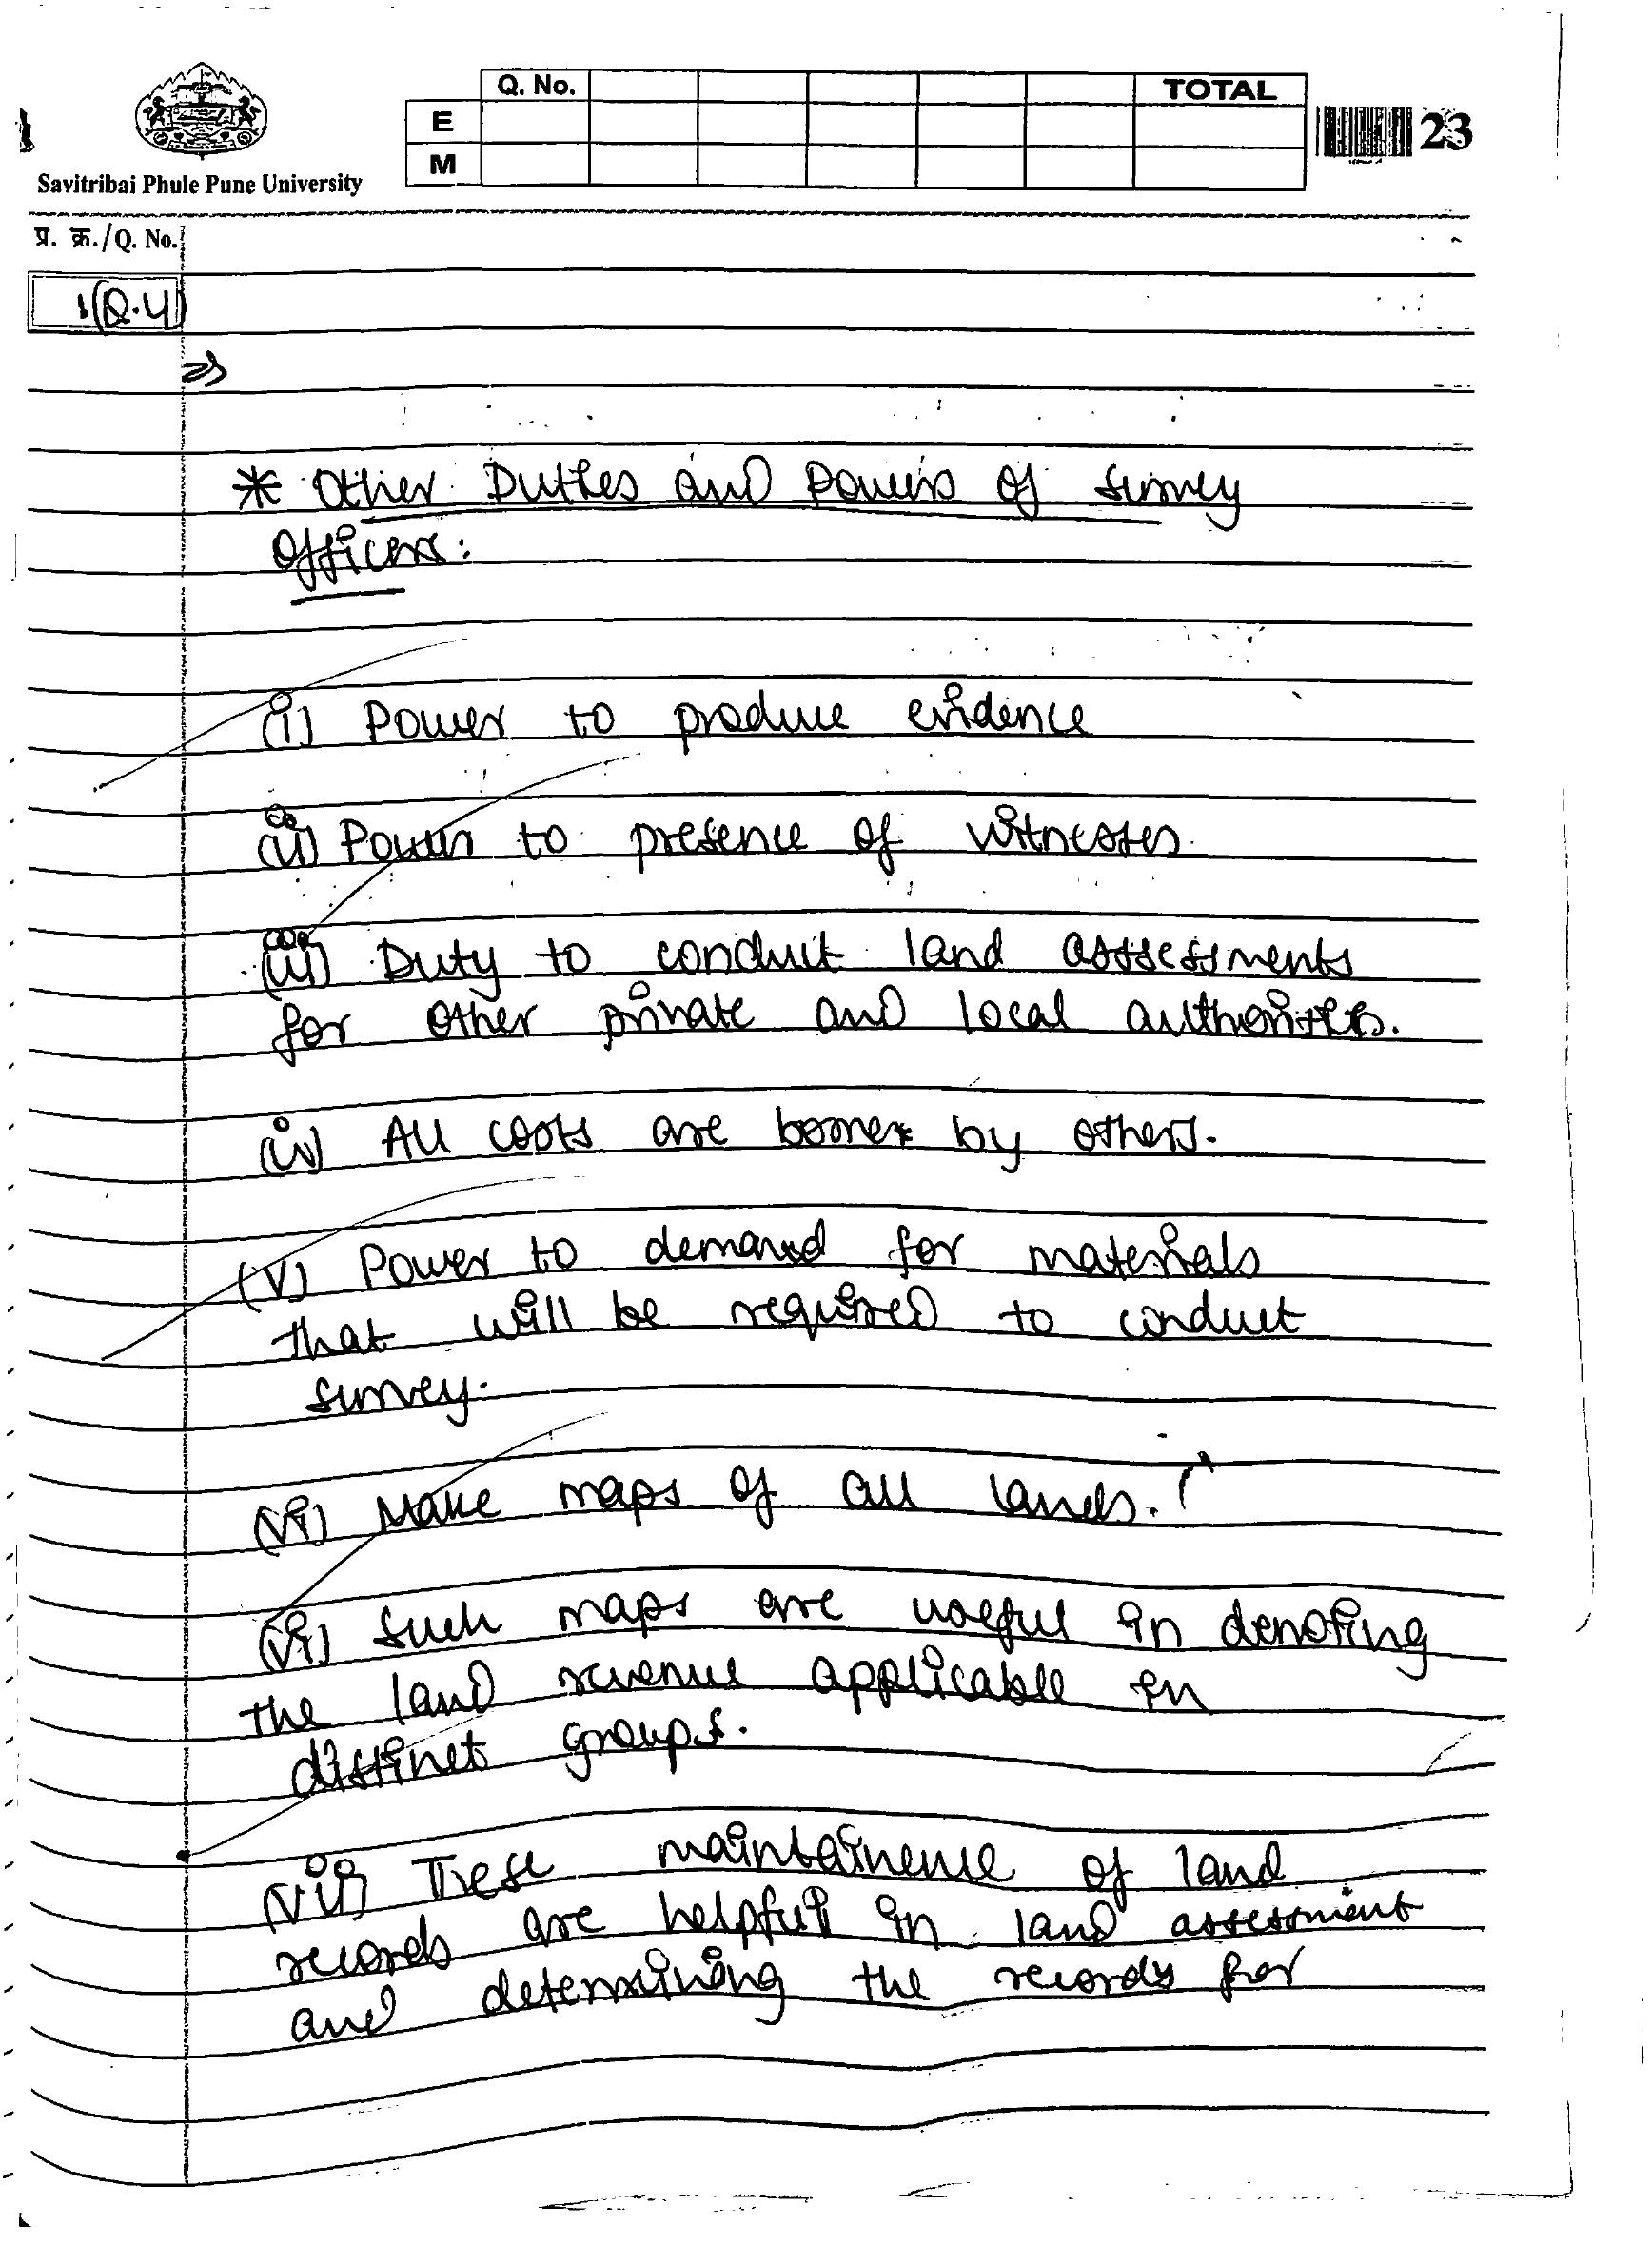 Q. No. TOTAL
E
M
23
Savitribai Phule Pune University
प्र. क्र./Q. No.
(Q.4)
=>
* Other Duties and Powers of Survey
Officers:
(i) Power to produce evidence
(ii) Power to presence of witnesses.
(iii) Duty to conduct land asssessments
for other private and local authorities.
(iv) All costs are borne by others.
(v) Power to demand for materials
that will be required to conduct
survey.
(vi) Make maps of all lands.
(vi) Such maps are useful in denoting
the land revenue applicable in
distinct groups.
(vii) These maintainence of land
records are helpful in land assessment
and determining the records for